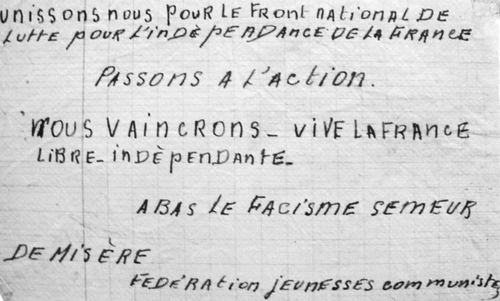 unissons nous pour le front national de
lutte pour l'indépendance de la france
Passons a l'action.
nous vaincrons_ vive la france
libre_ indèpendante_
abas le facisme semeur
de misère
Fedèration jeunesses communistes